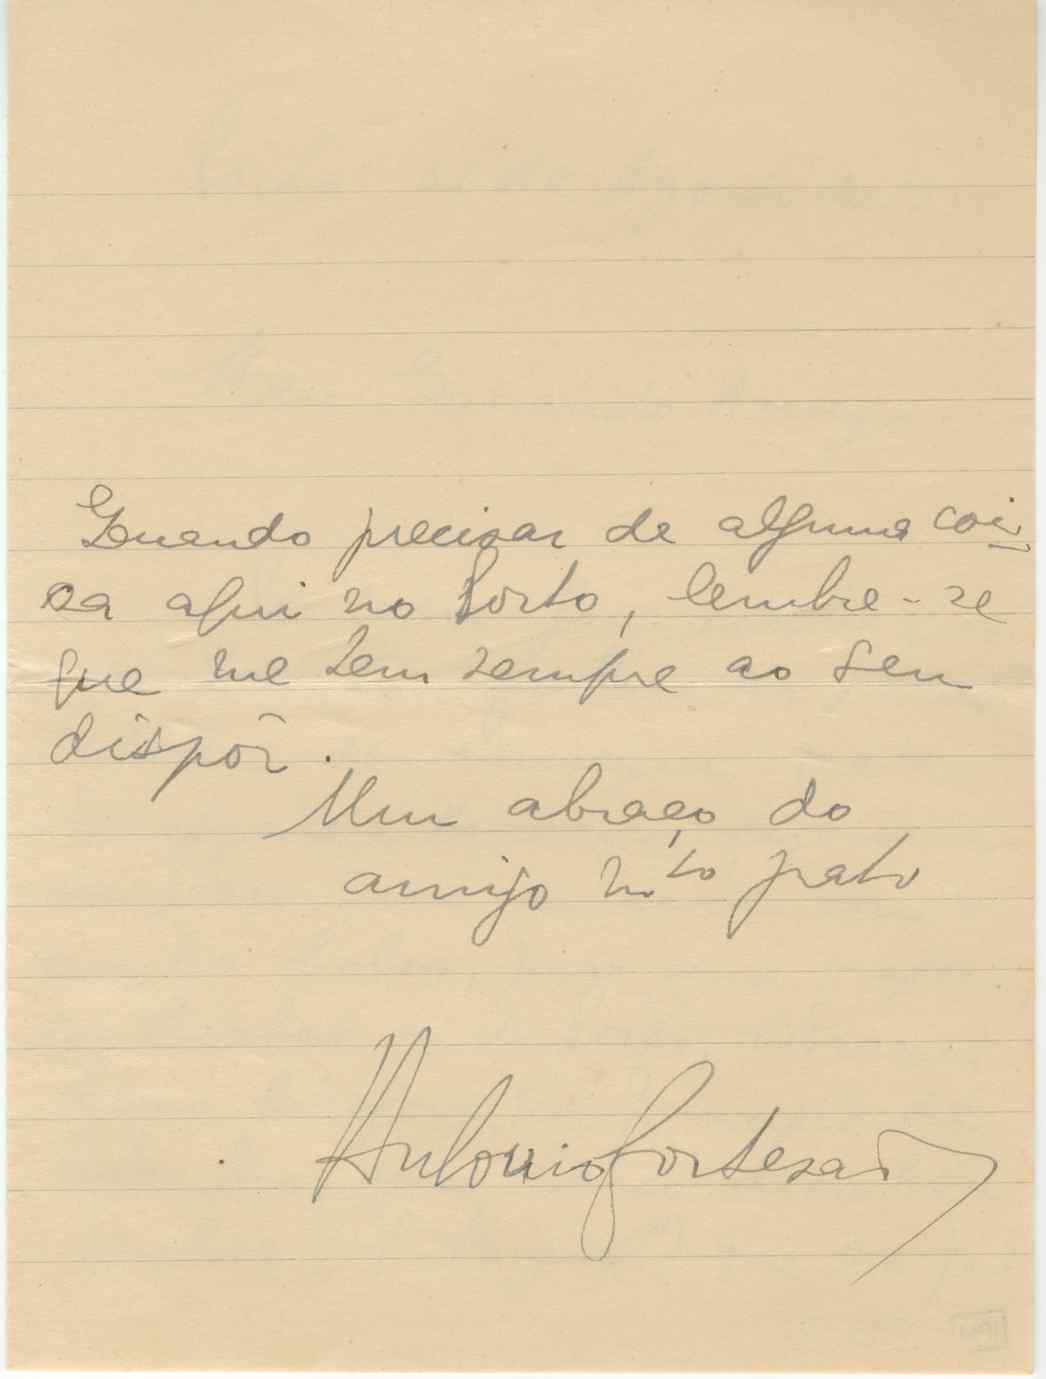 Quando precisar de alguma coi-
sa aqui no Porto, lembre-se
que me tem sempre ao seu
dispôr.
Um abraço do
amigo mto grato
Antonio Cortesão